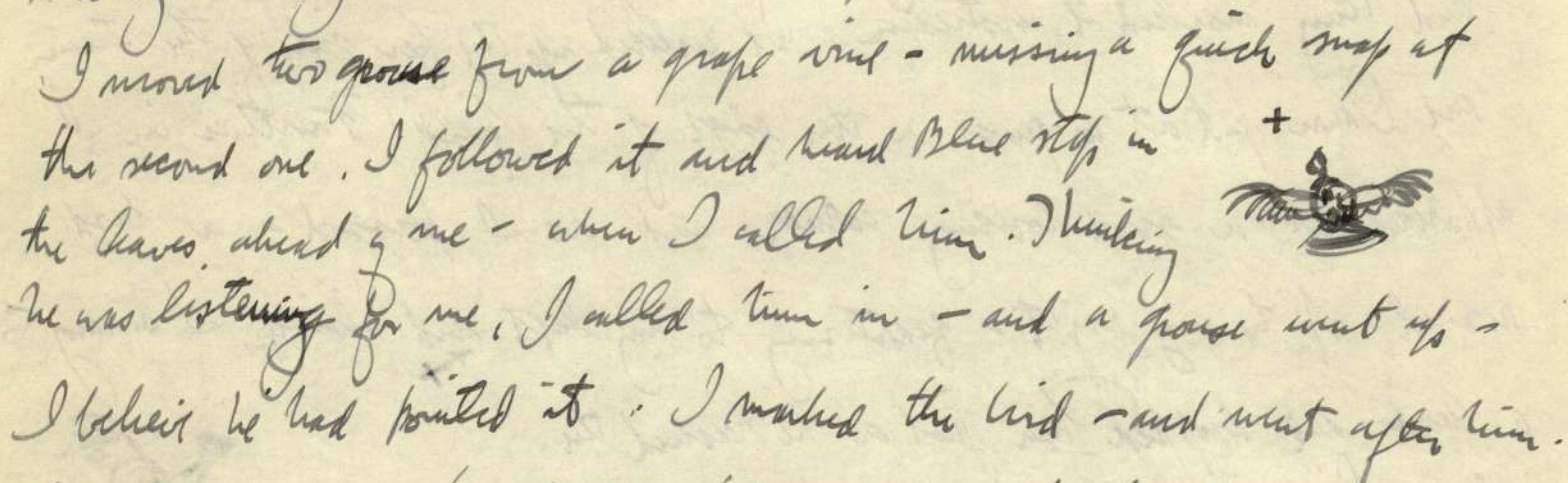 I moved two grouse from a grape vine - missing a quick snap at
the second one. I followed it and heard Blue stop in
the leaves ahead of me - when I called him. Thinking
he was listening for me, I called him in - and a grouse went up -
I believe he had pointed it. I marked the bird - and went after him.